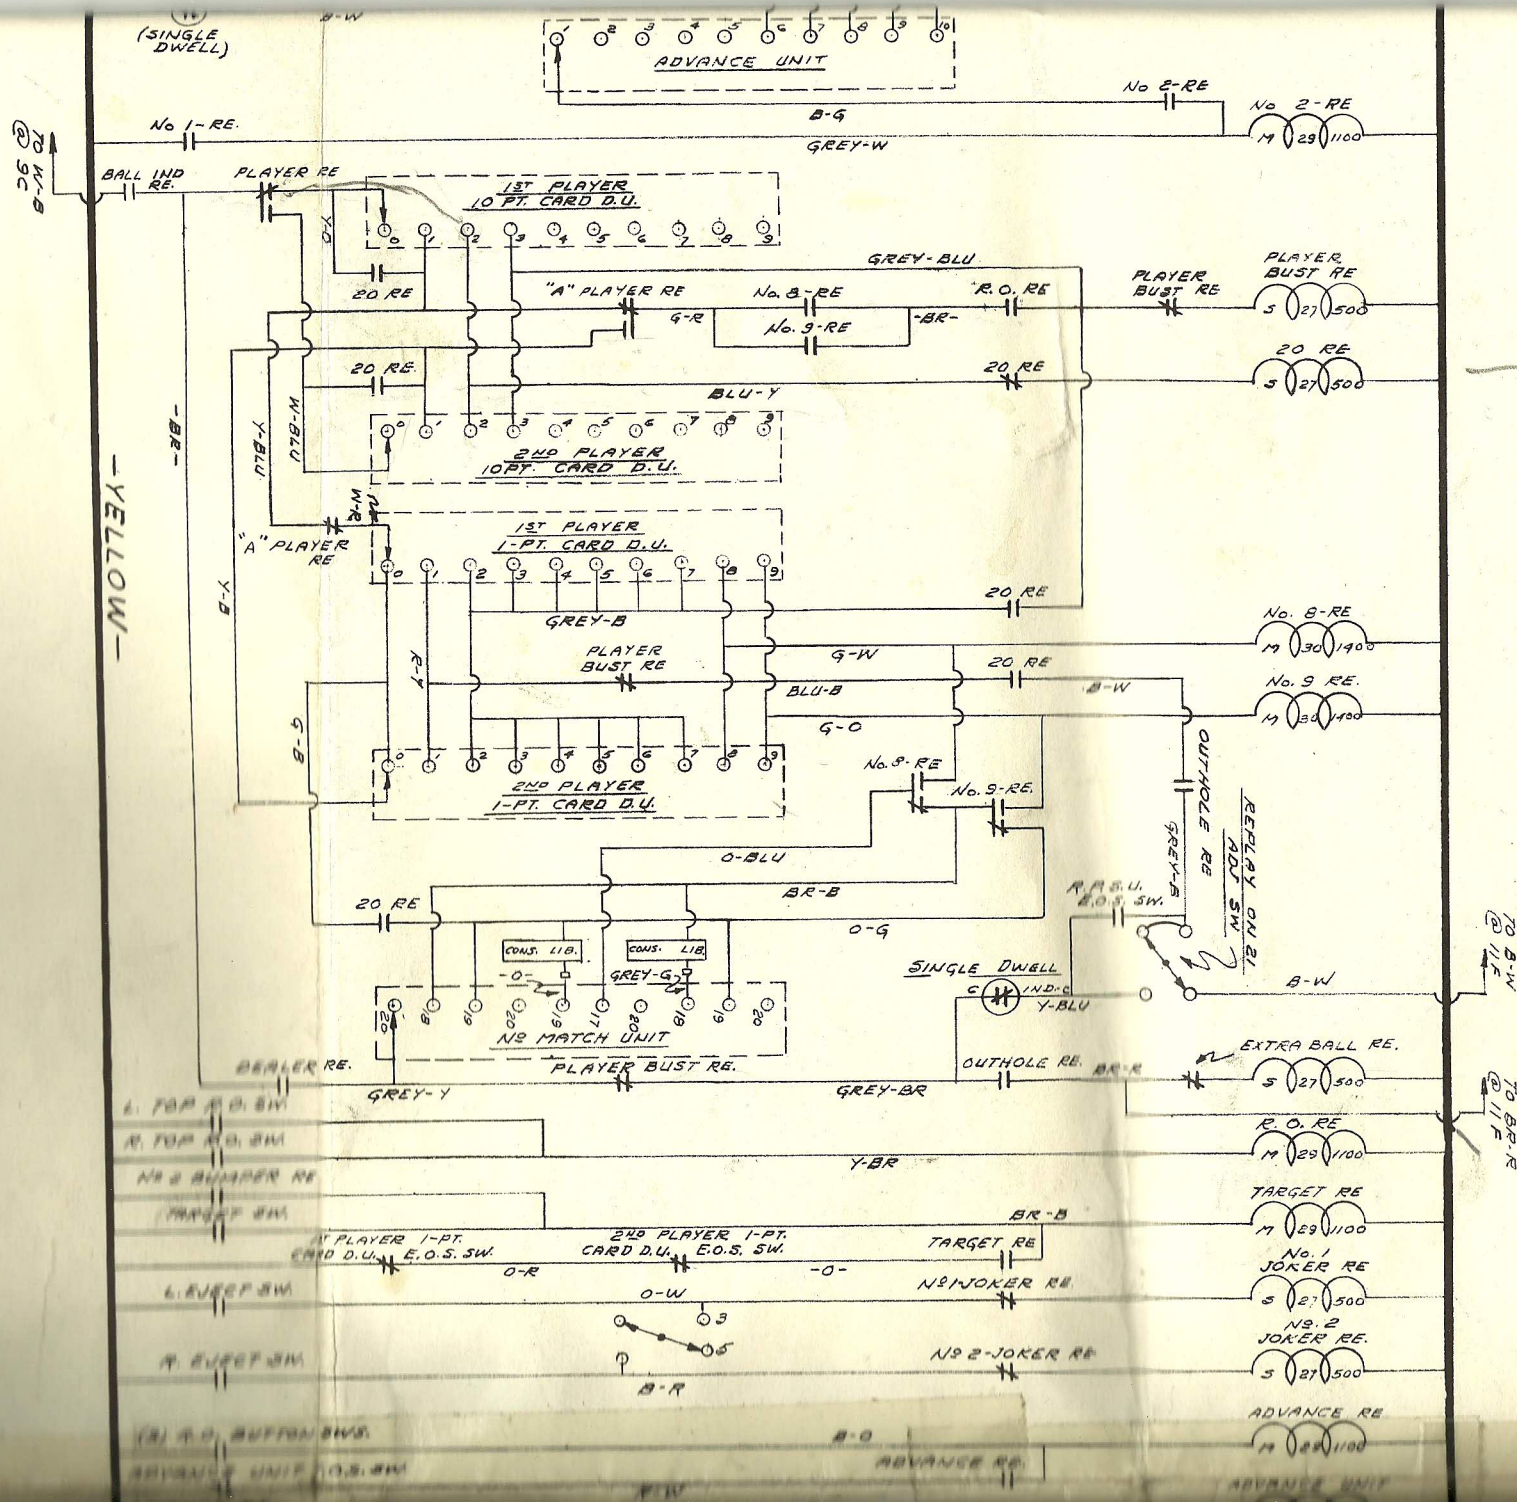 (SINGLE
DWELL)
B-W
1 2 3 4 5 6 7 8 9 10
ADVANCE UNIT
No 2-RE
B-G
No 2-RE
M 29 1100
No 1-RE.
GREY-W
TO W-B
@ 9C
BALL IND
RE.
PLAYER RE
1ST PLAYER
10 PT. CARD D.U.
0 1 2 3 4 5 6 7 8 9
Y-O
20 RE
GREY-BLU
"A" PLAYER RE
No. 8-RE
R.O. RE
PLAYER
BUST RE
PLAYER
BUST RE
S 27 500
G-R
No. 9-RE
-BR-
20 RE
20 RE
20 RE
S 27 500
BLU-Y
-BR-
Y-BLU
W-BLU
0 1 2 3 4 5 6 7 8 9
2ND PLAYER
10PT. CARD D.U.
-YELLOW-
W-R
1ST PLAYER
1-PT. CARD D.U.
"A" PLAYER
RE
0 1 2 3 4 5 6 7 8 9
Y-B
20 RE
GREY-B
No. 8-RE
M 30 1400
R-Y
PLAYER
BUST RE
G-W
20 RE
BLU-B
B-W
No. 9 RE.
M 30 1400
G-B
G-O
0 1 2 3 4 5 6 7 8 9
2ND PLAYER
1-PT. CARD D.U.
No. 8-RE
No. 9-RE.
OUTHOLE RE
GREY-B
REPLAY ON 21
ADJ SW
O-BLU
BR-B
20 RE
O-G
R.P.S.U.
E.O.S. SW.
CONS. LIB.
CONS. LIB.
-O-
GREY-G
SINGLE DWELL
C IND-C
Y-BLU
B-W
TO B-W
@ 11F
20 18 19 20 19 17 20 18 19 20
No MATCH UNIT
DEALER RE.
PLAYER BUST RE.
GREY-Y
GREY-BR
OUTHOLE RE.
BR-R
EXTRA BALL RE.
S 27 500
TO BR-R
@ 11F
L. TOP R.O. SW.
R. TOP R.O. SW.
Y-BR
R.O. RE
M 29 1100
No 2 BUMPER RE
TARGET SW.
BR-B
TARGET RE
M 29 1100
PLAYER 1-PT.
CARD D.U. E.O.S. SW.
2ND PLAYER 1-PT.
CARD D.U. E.O.S. SW.
TARGET RE
O-R
-O-
L. EJECT SW.
O-W
No 1-JOKER RE.
No. 1
JOKER RE
S 27 500
3
5
R. EJECT SW.
B-R
No 2-JOKER RE
No. 2
JOKER RE.
S 27 500
(3) R.O. BUTTON SWS.
B-O
ADVANCE RE
M 29 1100
ADVANCE UNIT E.O.S. SW
ADVANCE RE.
R-W
ADVANCE UNIT